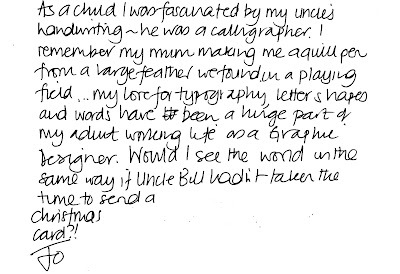 As a child I was fascinated by my uncle's
handwriting ~ he was a calligrapher. I
remember my mum making me a quill pen
from a large feather we found in a playing
field... my love for typography, letter shapes
and words have been a huge part of
my adult working life as a Graphic
Designer. Would I see the world in the
same way if Uncle Bill hadn't taken the
time to send a
christmas
card?!
Jo